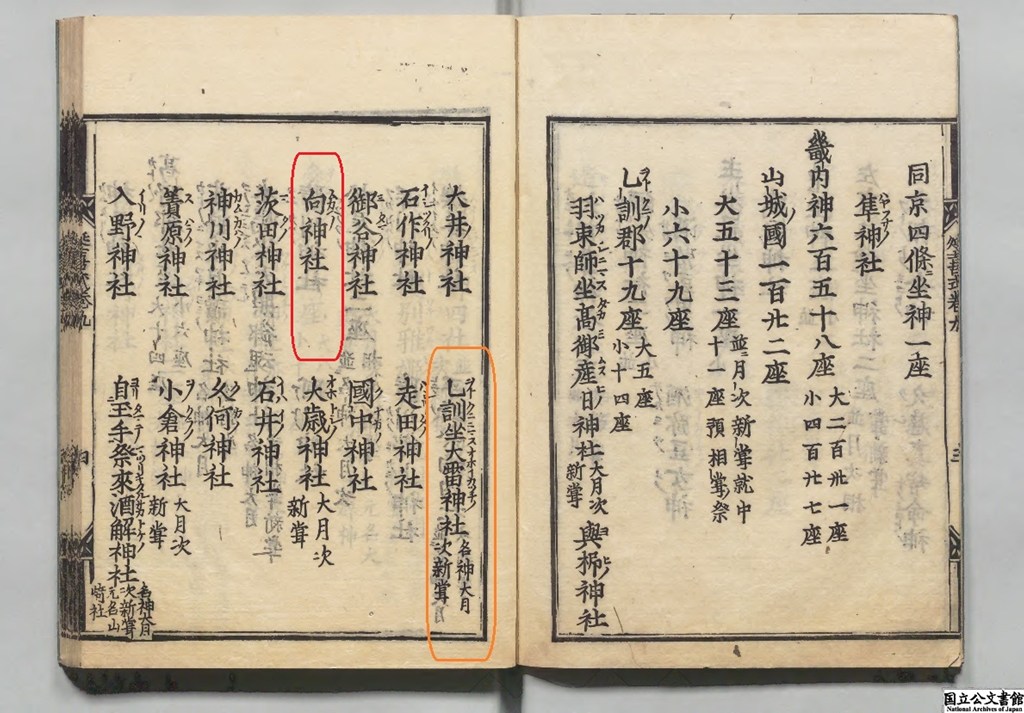 同京四條ニ坐神一座
隼神社
畿内神六百五十八座 大二百卅一座 小四百廿七座
山城國一百廿二座
大五十三座 並月次新甞就中 十一座預相甞祭
小六十九座
乙訓郡十九座 大五座 小十四座
羽束師坐高御産日神社 大月次 新甞 與杼神社
大井神社 乙訓坐大雷神社 名神大月 次新甞
石作神社 走田神社
御谷神社 國中神社
向神社 大歳神社 大月次 新甞
茨田神社 石井神社
神川神社 久何神社
簀原神社 小倉神社 大月次 新甞
入野神社 自玉手祭來酒解神社 名神大月 次新甞 元名山 崎社
国立公文書館
National Archives of Japan